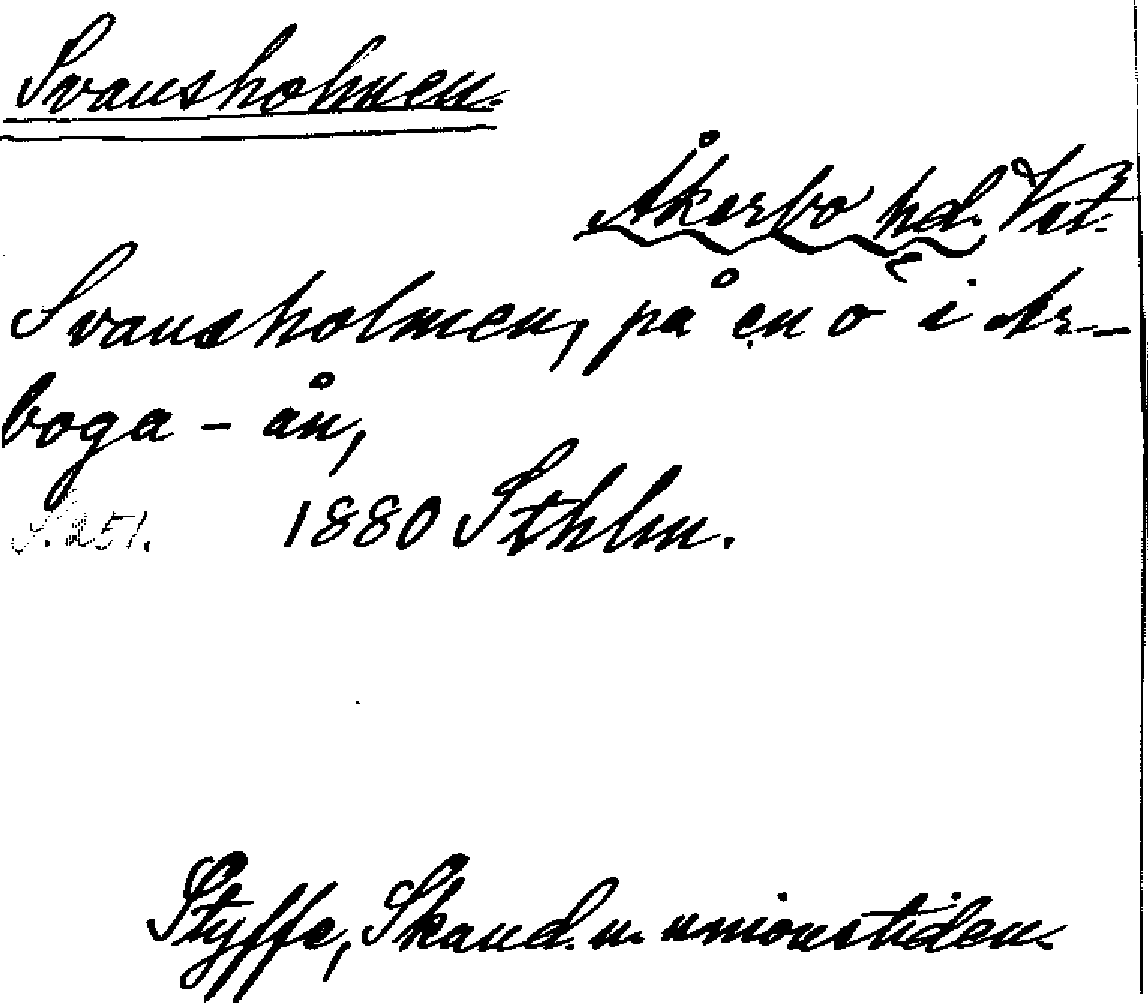 Svansholmen.
Åkerbo hd. Vst.
Svansholmen, på en ö i Ar-
boga-ån,
S. 251. 1880 Sthlm.
Styffe, Skand. u. unionstiden.